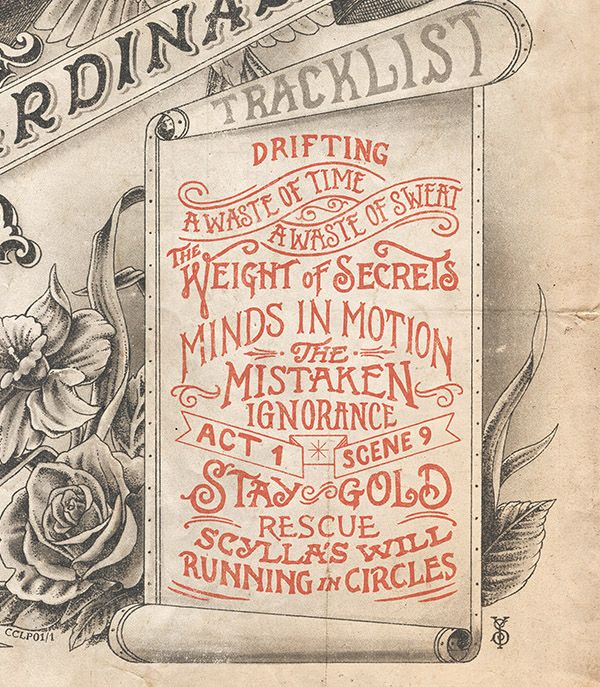 RDINA
TRACKLIST
DRIFTING
A WASTE OF TIME
A WASTE OF SWEAT
THE
WEIGHT OF SECRETS
MINDS IN MOTION
THE
MISTAKEN
IGNORANCE
ACT 1 SCENE 9
STAY GOLD
RESCUE
SCYLLA'S WILL
RUNNING IN CIRCLES
CCLP01/1